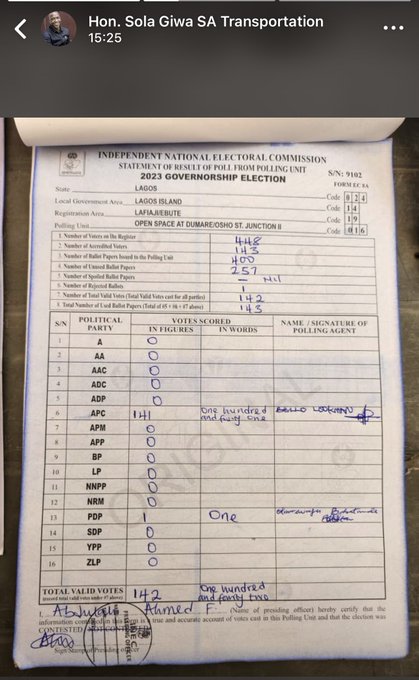 Hon. Sola Giwa SA Transportation
15:25
INDEPENDENT NATIONAL ELECTORAL COMMISSION
STATEMENT OF RESULT OF POLL FROM POLLING UNIT
2023 GOVERNORSHIP ELECTION
S/N: 9102
FORM EC 8A
State LAGOS Code 024
Local Government Area LAGOS ISLAND Code 14
Registration Area LAFIAJI/EBUTE Code 19
Polling Unit OPEN SPACE AT DUMARE/OSHO ST. JUNCTION II Code 016
1. Number of Voters on the Register 448
2. Number of Accredited Voters 143
3. Number of Ballot Papers Issued to the Polling Unit 400
4. Number of Unused Ballot Papers 257
5. Number of Spoiled Ballot Papers - Nil
6. Number of Rejected Ballots 1
7. Number of Total Valid Votes (Total Valid Votes cast for all parties) 142
8. Total Number of Used Ballot Papers (Total of #5 + #6 + #7 above) 143
S/N POLITICAL PARTY VOTES SCORED NAME / SIGNATURE OF POLLING AGENT
IN FIGURES IN WORDS
1 A 0
2 AA 0
3 AAC 0
4 ADC 0
5 ADP 0
6 APC 141 One hundred and forty one BELLO LOOKMAN
7 APM 0
8 APP 0
9 BP 0
10 LP 0
11 NNPP 0
12 NRM 0
13 PDP 1 One
14 SDP 0
15 YPP 0
16 ZLP 0
ORIGINAL
TOTAL VALID VOTES 142 One hundred and forty two
(record total valid votes under #7 above)
I, Ahmed F. (Name of presiding officer) hereby certify that the
information contained in this form is a true and accurate account of votes cast in this Polling Unit and that the election was
CONTESTED / NOT CONTESTED
Sign/Stamp of Presiding officer